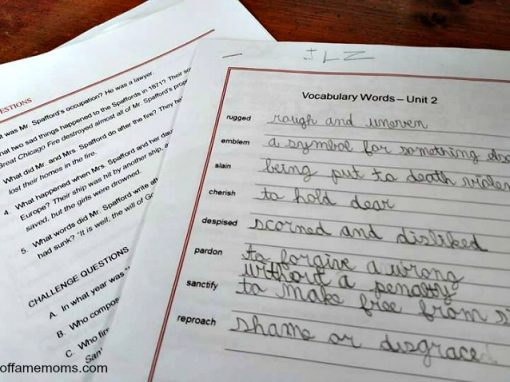 ESTIONS
at was Mr. Spafford's occupation? He was a lawyer.
hat two sad things happened to the Spaffords in 1871? Their so
Great Chicago Fire destroyed almost all of Mr. Spafford's prop
What did Mr. and Mrs. Spafford do after the fire? They he
lost their homes in the fire.
4. What happened when Mrs. Spafford and her dau
Europe? Their ship was hit by another ship, a
saved, but the girls were drowned.
5. What words did Mr. Spafford write ab
had sunk? "It is well, the will of Go
CHALLENGE QUESTIONS
A. In what year was
B. Who compo
C. Who fin
San
JLZ
Vocabulary Words – Unit 2
rugged rough and uneven
emblem a symbol for something
slain being put to death violen
cherish to hold dear
despised scorned and disliked
pardon to forgive a wrong
without a penalty
sanctify to make free from s
reproach shame or disgrace
offamemoms.com